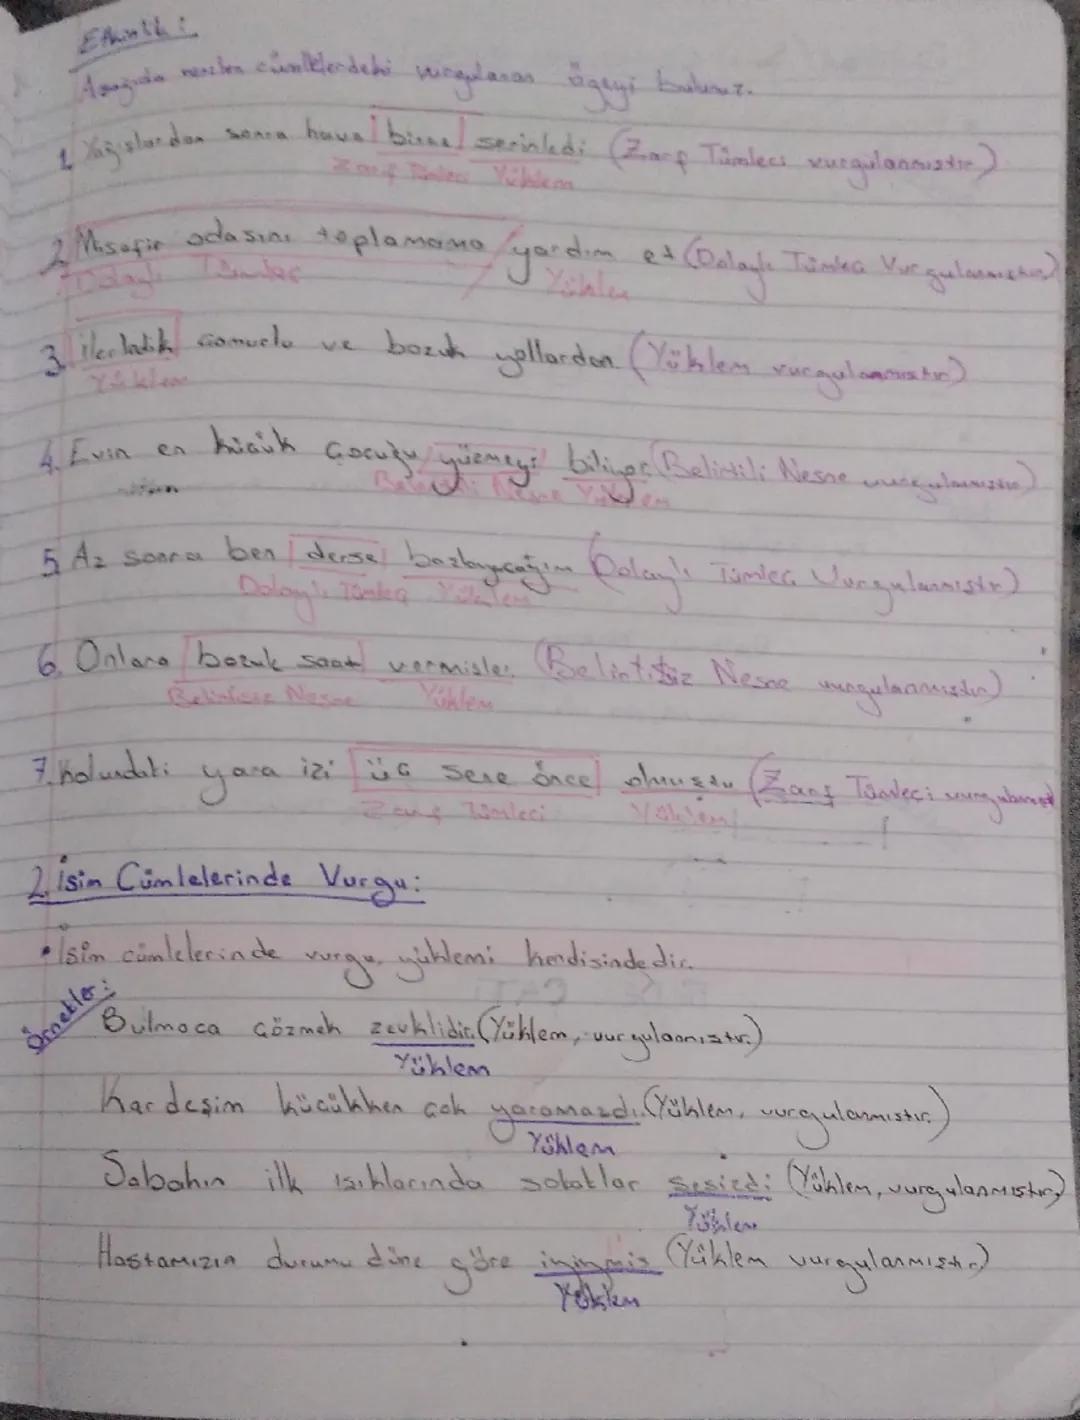 Etkinlik:
Aşağıda verilen cümlelerdeki vurgulanan ögeyi bulunuz.
1. Yağışlardan sonra hava biraz serinledi (Zarf Tümleci vurgulanmıştır)
Zarf Tümleci Yüklem
2. Misafir odasını toplamama yardım et (Dolaylı Tümleç Vurgulanmıştır)
Dolaylı Tümleç Yüklem
3. ilerledik çamurlu ve bozuk yollardan (Yüklem vurgulanmıştır)
Yüklem
4. Evin en küçük çocuğu yüzmeyi biliyor (Belirtili Nesne vurgulanmıştır)
Belirtili Nesne Yüklem
5. Az sonra ben derse başlayacağım (Dolaylı Tümleç Vurgulanmıştır)
Dolaylı Tümleç Yüklem
6. Onlara bozuk saat vermişler (Belirtisiz Nesne vurgulanmıştır)
Belirtisiz Nesne Yüklem
7. Kolundaki yara izi üç sene önce olmuştu (Zarf Tümleci
Zarf Tümleci Yüklem
2. İsim Cümlelerinde Vurgu:
• İsim cümlelerinde vurgu, yüklemi kendisindedir.
Örnekler:
Bulmaca çözmek zevklidir. (Yüklem, vurgulanmıştır.)
Yüklem
Kardeşim küçükken çok yaramazdı. (Yüklem, vurgulanmıştır.)
Yüklem
Sabahın ilk ışıklarında sokaklar sesizdi (Yüklem, vurgulanmıştır)
Yüklem
Hastamızın durumu düne göre iyiymiş (Yüklem vurgulanmıştır)
Yüklem